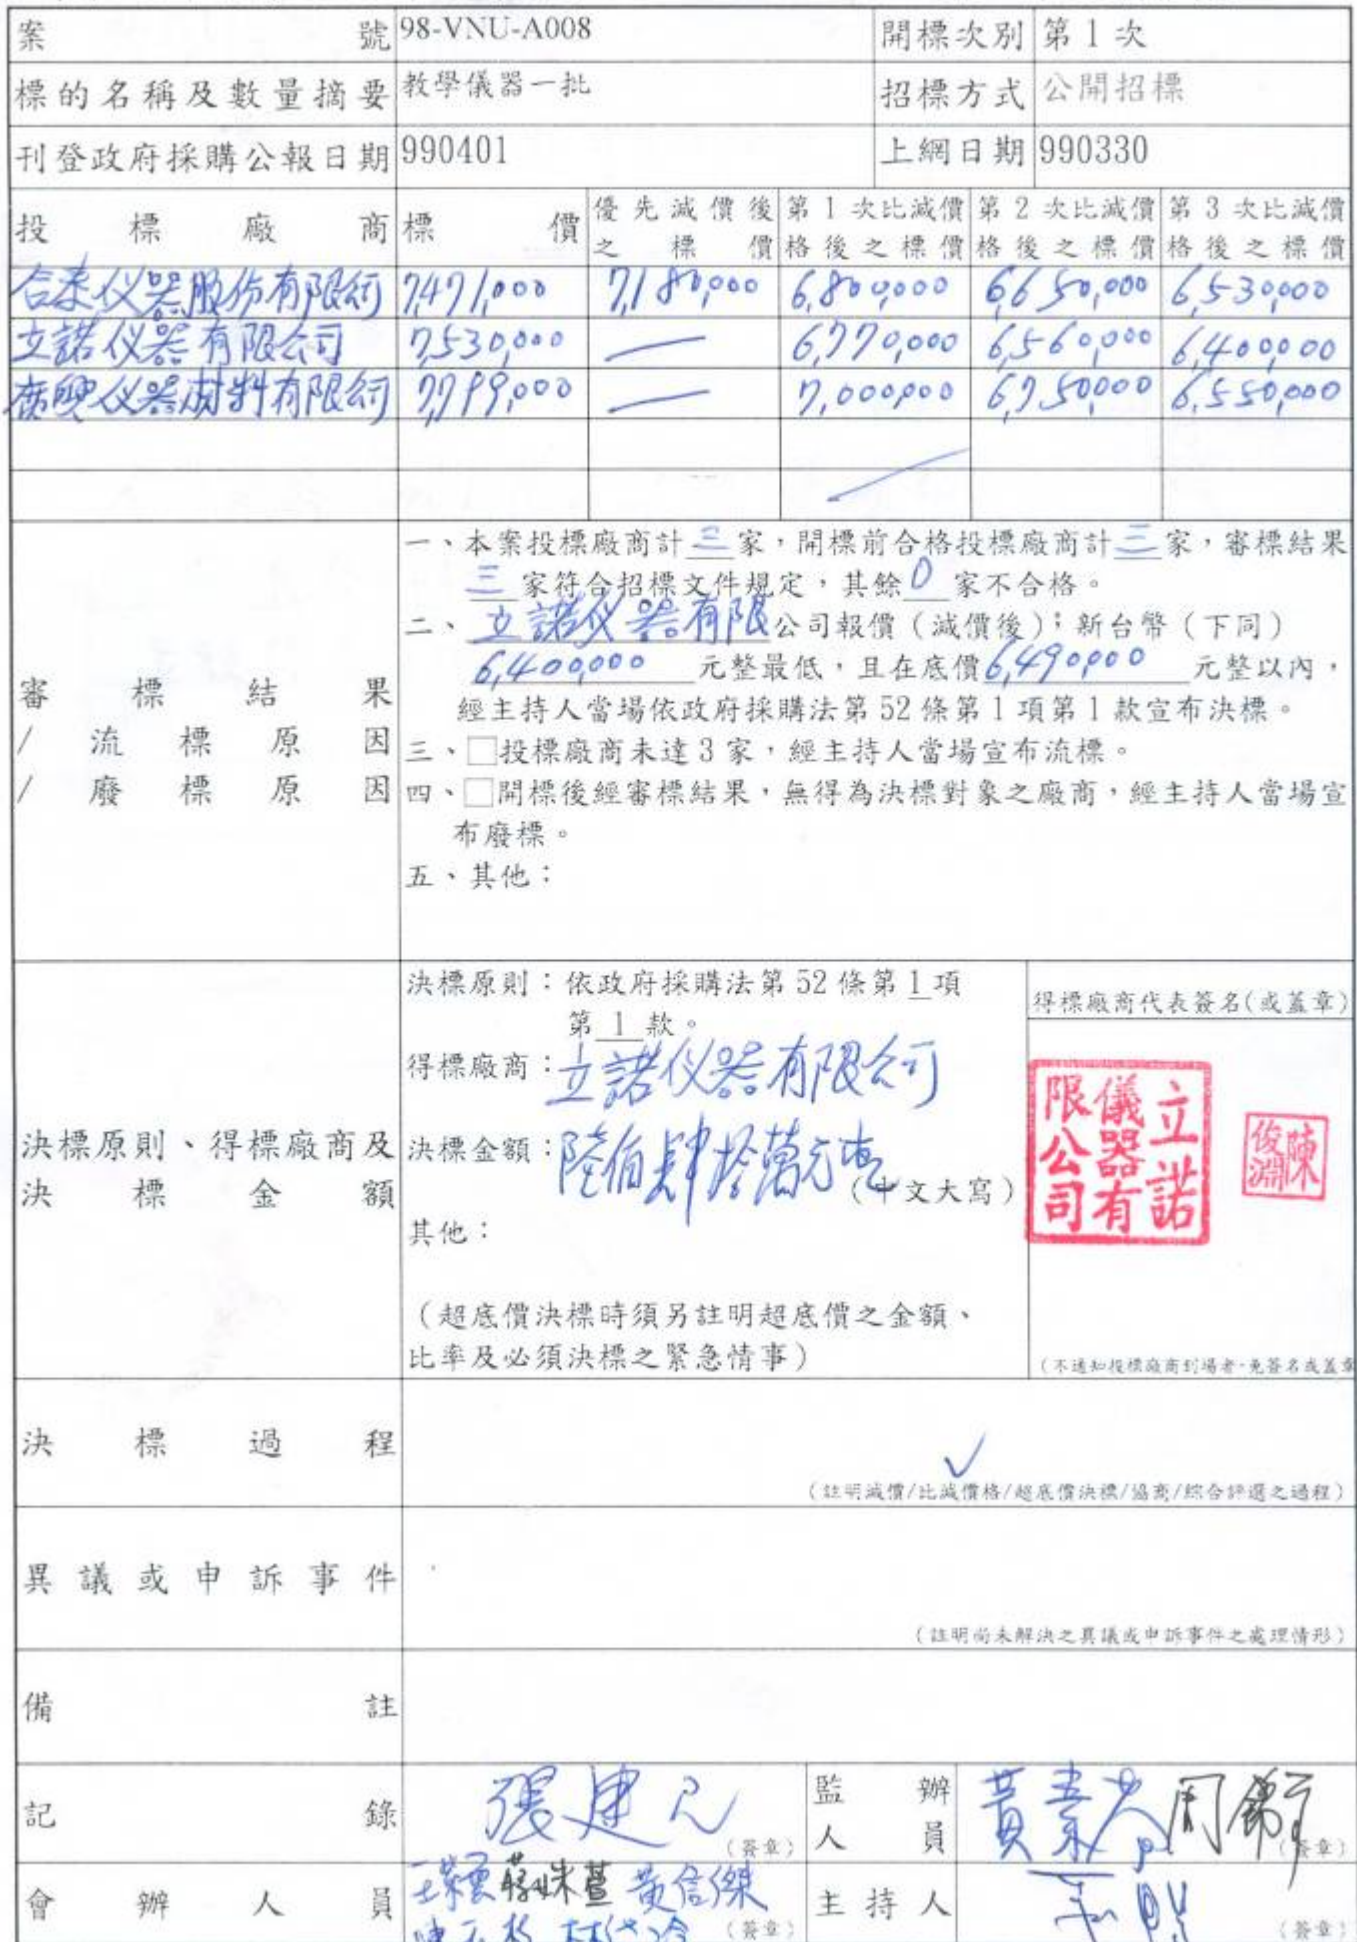 案號 98-VNU-A008 開標次別 第1次
標的名稱及數量摘要 教學儀器一批 招標方式 公開招標
刊登政府採購公報日期 990401 上網日期 990330
投標廠商 標價 優先減價後之標價 第1次比減價格後之標價 第2次比減價格後之標價 第3次比減價格後之標價
合泰仪器股份有限公司 7,471,000 7,180,000 6,800,000 6,650,000 6,530,000
立諾仪器有限公司 7,530,000 — 6,770,000 6,560,000 6,400,000
仪器材料有限公司 7,799,000 — 7,000,000 6,750,000 6,550,000
審標結果
/流標原因
/廢標原因
一、本案投標廠商計三家,開標前合格投標廠商計三家,審標結果
三家符合招標文件規定,其餘0家不合格。
二、立諾仪器有限公司報價(減價後);新台幣(下同)
6,400,000元整最低,且在底價6,490,000元整以內,
經主持人當場依政府採購法第52條第1項第1款宣布決標。
三、□投標廠商未達3家,經主持人當場宣布流標。
四、□開標後經審標結果,無得為決標對象之廠商,經主持人當場宣
布廢標。
五、其他:
決標原則、得標廠商及
決標金額
決標原則:依政府採購法第52條第1項
第1款。
得標廠商:立諾仪器有限公司
決標金額:陸佰肆拾萬元整(中文大寫)
其他:
(超底價決標時須另註明超底價之金額、
比率及必須決標之緊急情事)
得標廠商代表簽名(或蓋章)
立諾儀器有限公司
陳俊淵
(不通知投標廠商到場者,免簽名或蓋章
決標過程
(註明減價/比減價格/超底價決標/協商/綜合評選之過程)
異議或申訴事件
(註明尚未解決之異議或申訴事件之處理情形)
備註
記錄 張建 (簽章) 監辦人員 黃素 周 (簽章)
會辦人員 黃信傑 (簽章) 主持人 (簽章)